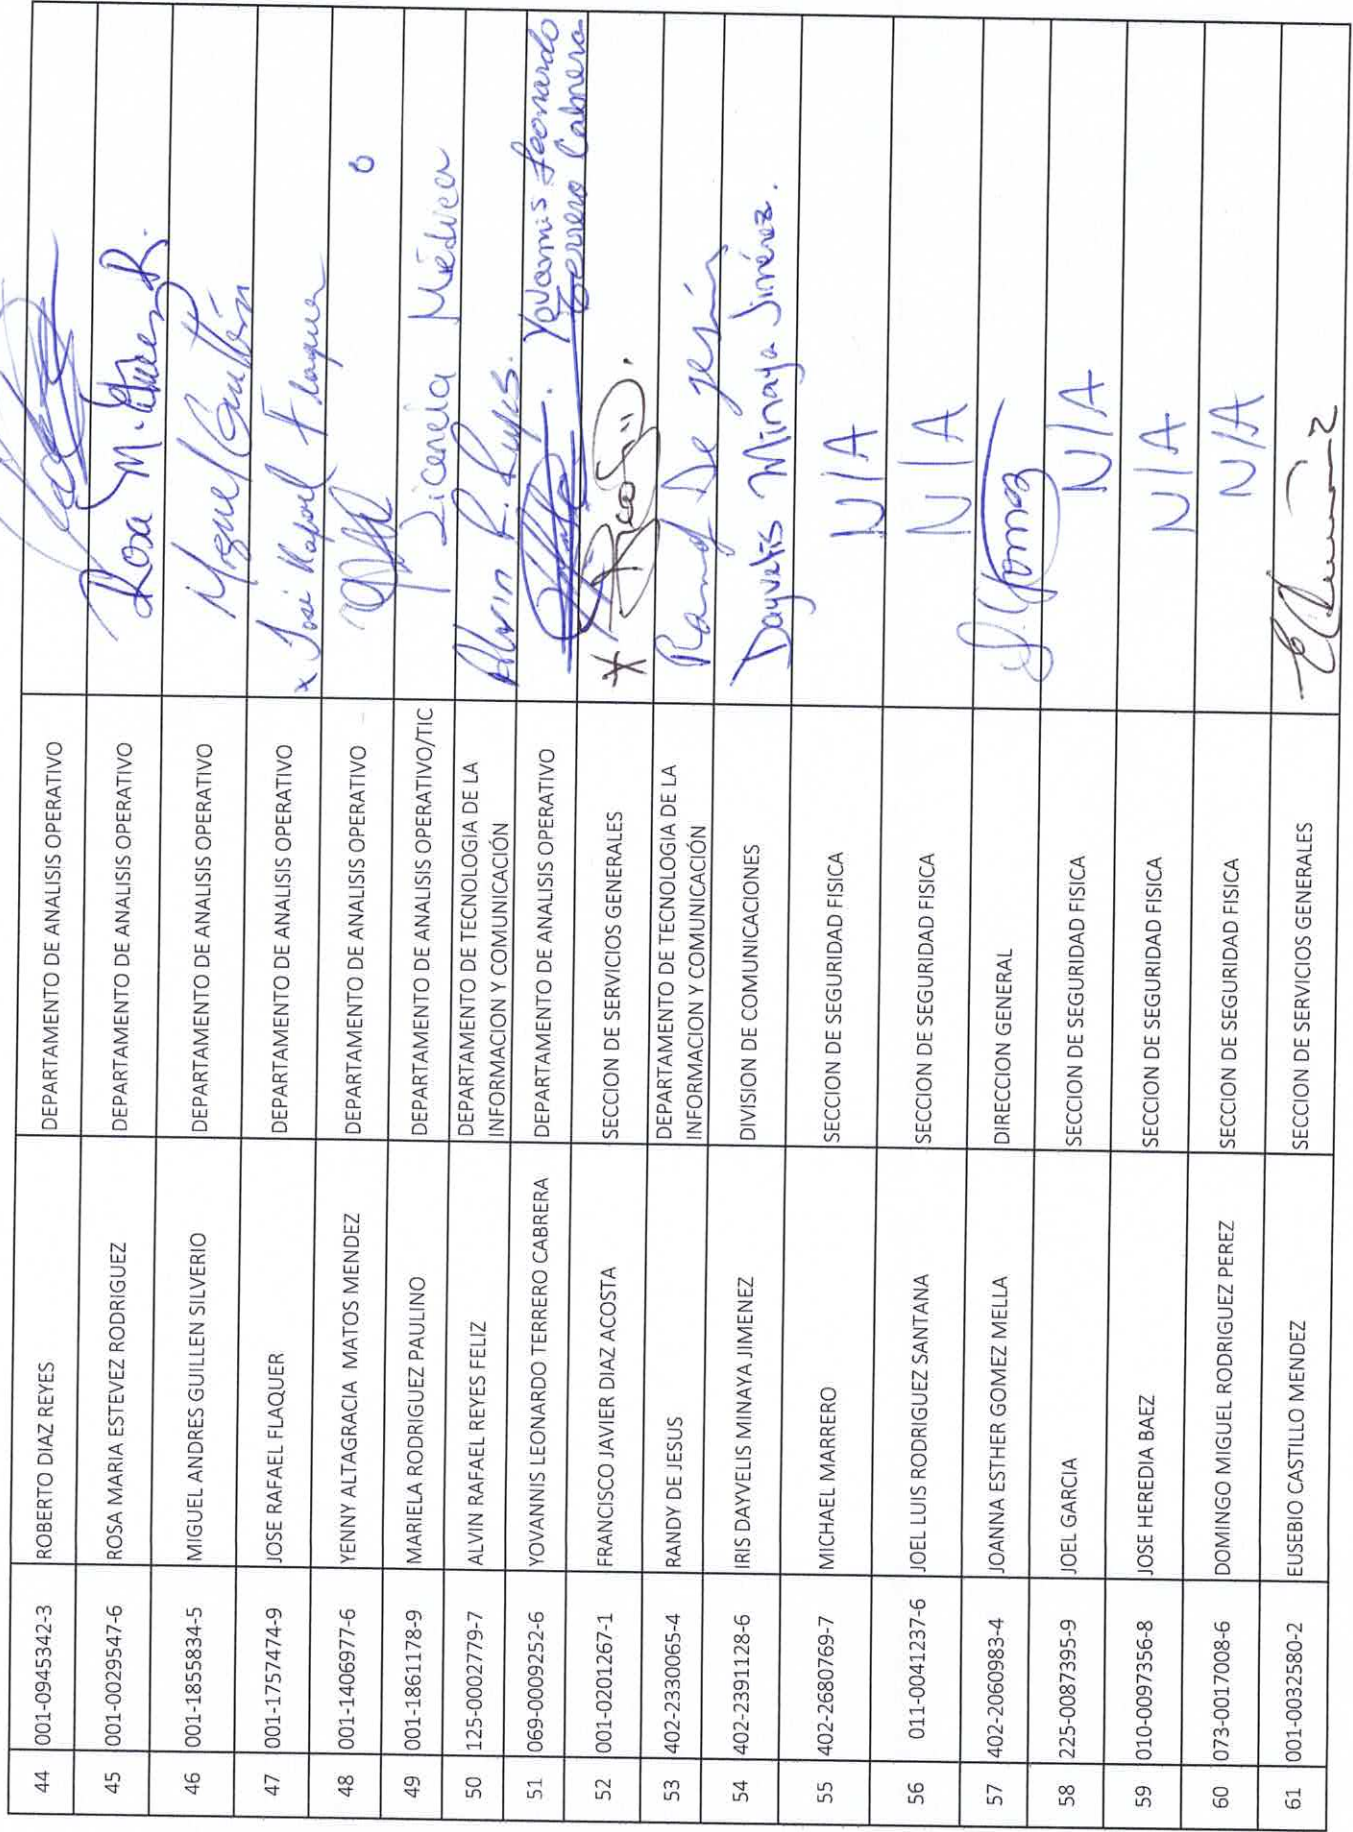 44 001-0945342-3 ROBERTO DIAZ REYES DEPARTAMENTO DE ANALISIS OPERATIVO
45 001-0029547-6 ROSA MARIA ESTEVEZ RODRIGUEZ DEPARTAMENTO DE ANALISIS OPERATIVO Rosa M.
46 001-1855834-5 MIGUEL ANDRES GUILLEN SILVERIO DEPARTAMENTO DE ANALISIS OPERATIVO Miguel Guillén
47 001-1757474-9 JOSE RAFAEL FLAQUER DEPARTAMENTO DE ANALISIS OPERATIVO x José Rafael Flaquer
48 001-1406977-6 YENNY ALTAGRACIA MATOS MENDEZ DEPARTAMENTO DE ANALISIS OPERATIVO
49 001-1861178-9 MARIELA RODRIGUEZ PAULINO DEPARTAMENTO DE ANALISIS OPERATIVO/TIC Licencia Médica
50 125-0002779-7 ALVIN RAFAEL REYES FELIZ DEPARTAMENTO DE TECNOLOGIA DE LA
INFORMACION Y COMUNICACIÓN Alvin R. Reyes.
51 069-0009252-6 YOVANNIS LEONARDO TERRERO CABRERA DEPARTAMENTO DE ANALISIS OPERATIVO Yovannis Leonardo
Terrero Cabrera
52 001-0201267-1 FRANCISCO JAVIER DIAZ ACOSTA SECCION DE SERVICIOS GENERALES
53 402-2330065-4 RANDY DE JESUS DEPARTAMENTO DE TECNOLOGIA DE LA
INFORMACION Y COMUNICACIÓN Randy De Jesús
54 402-2391128-6 IRIS DAYVELIS MINAYA JIMENEZ DIVISION DE COMUNICACIONES Dayvelis Minaya Jiménez.
55 402-2680769-7 MICHAEL MARRERO SECCION DE SEGURIDAD FISICA N/A
56 011-0041237-6 JOEL LUIS RODRIGUEZ SANTANA SECCION DE SEGURIDAD FISICA N/A
57 402-2060983-4 JOANNA ESTHER GOMEZ MELLA DIRECCION GENERAL J. Gomez
58 225-0087395-9 JOEL GARCIA SECCION DE SEGURIDAD FISICA N/A
59 010-0097356-8 JOSE HEREDIA BAEZ SECCION DE SEGURIDAD FISICA N/A
60 073-0017008-6 DOMINGO MIGUEL RODRIGUEZ PEREZ SECCION DE SEGURIDAD FISICA N/A
61 001-0032580-2 EUSEBIO CASTILLO MENDEZ SECCION DE SERVICIOS GENERALES